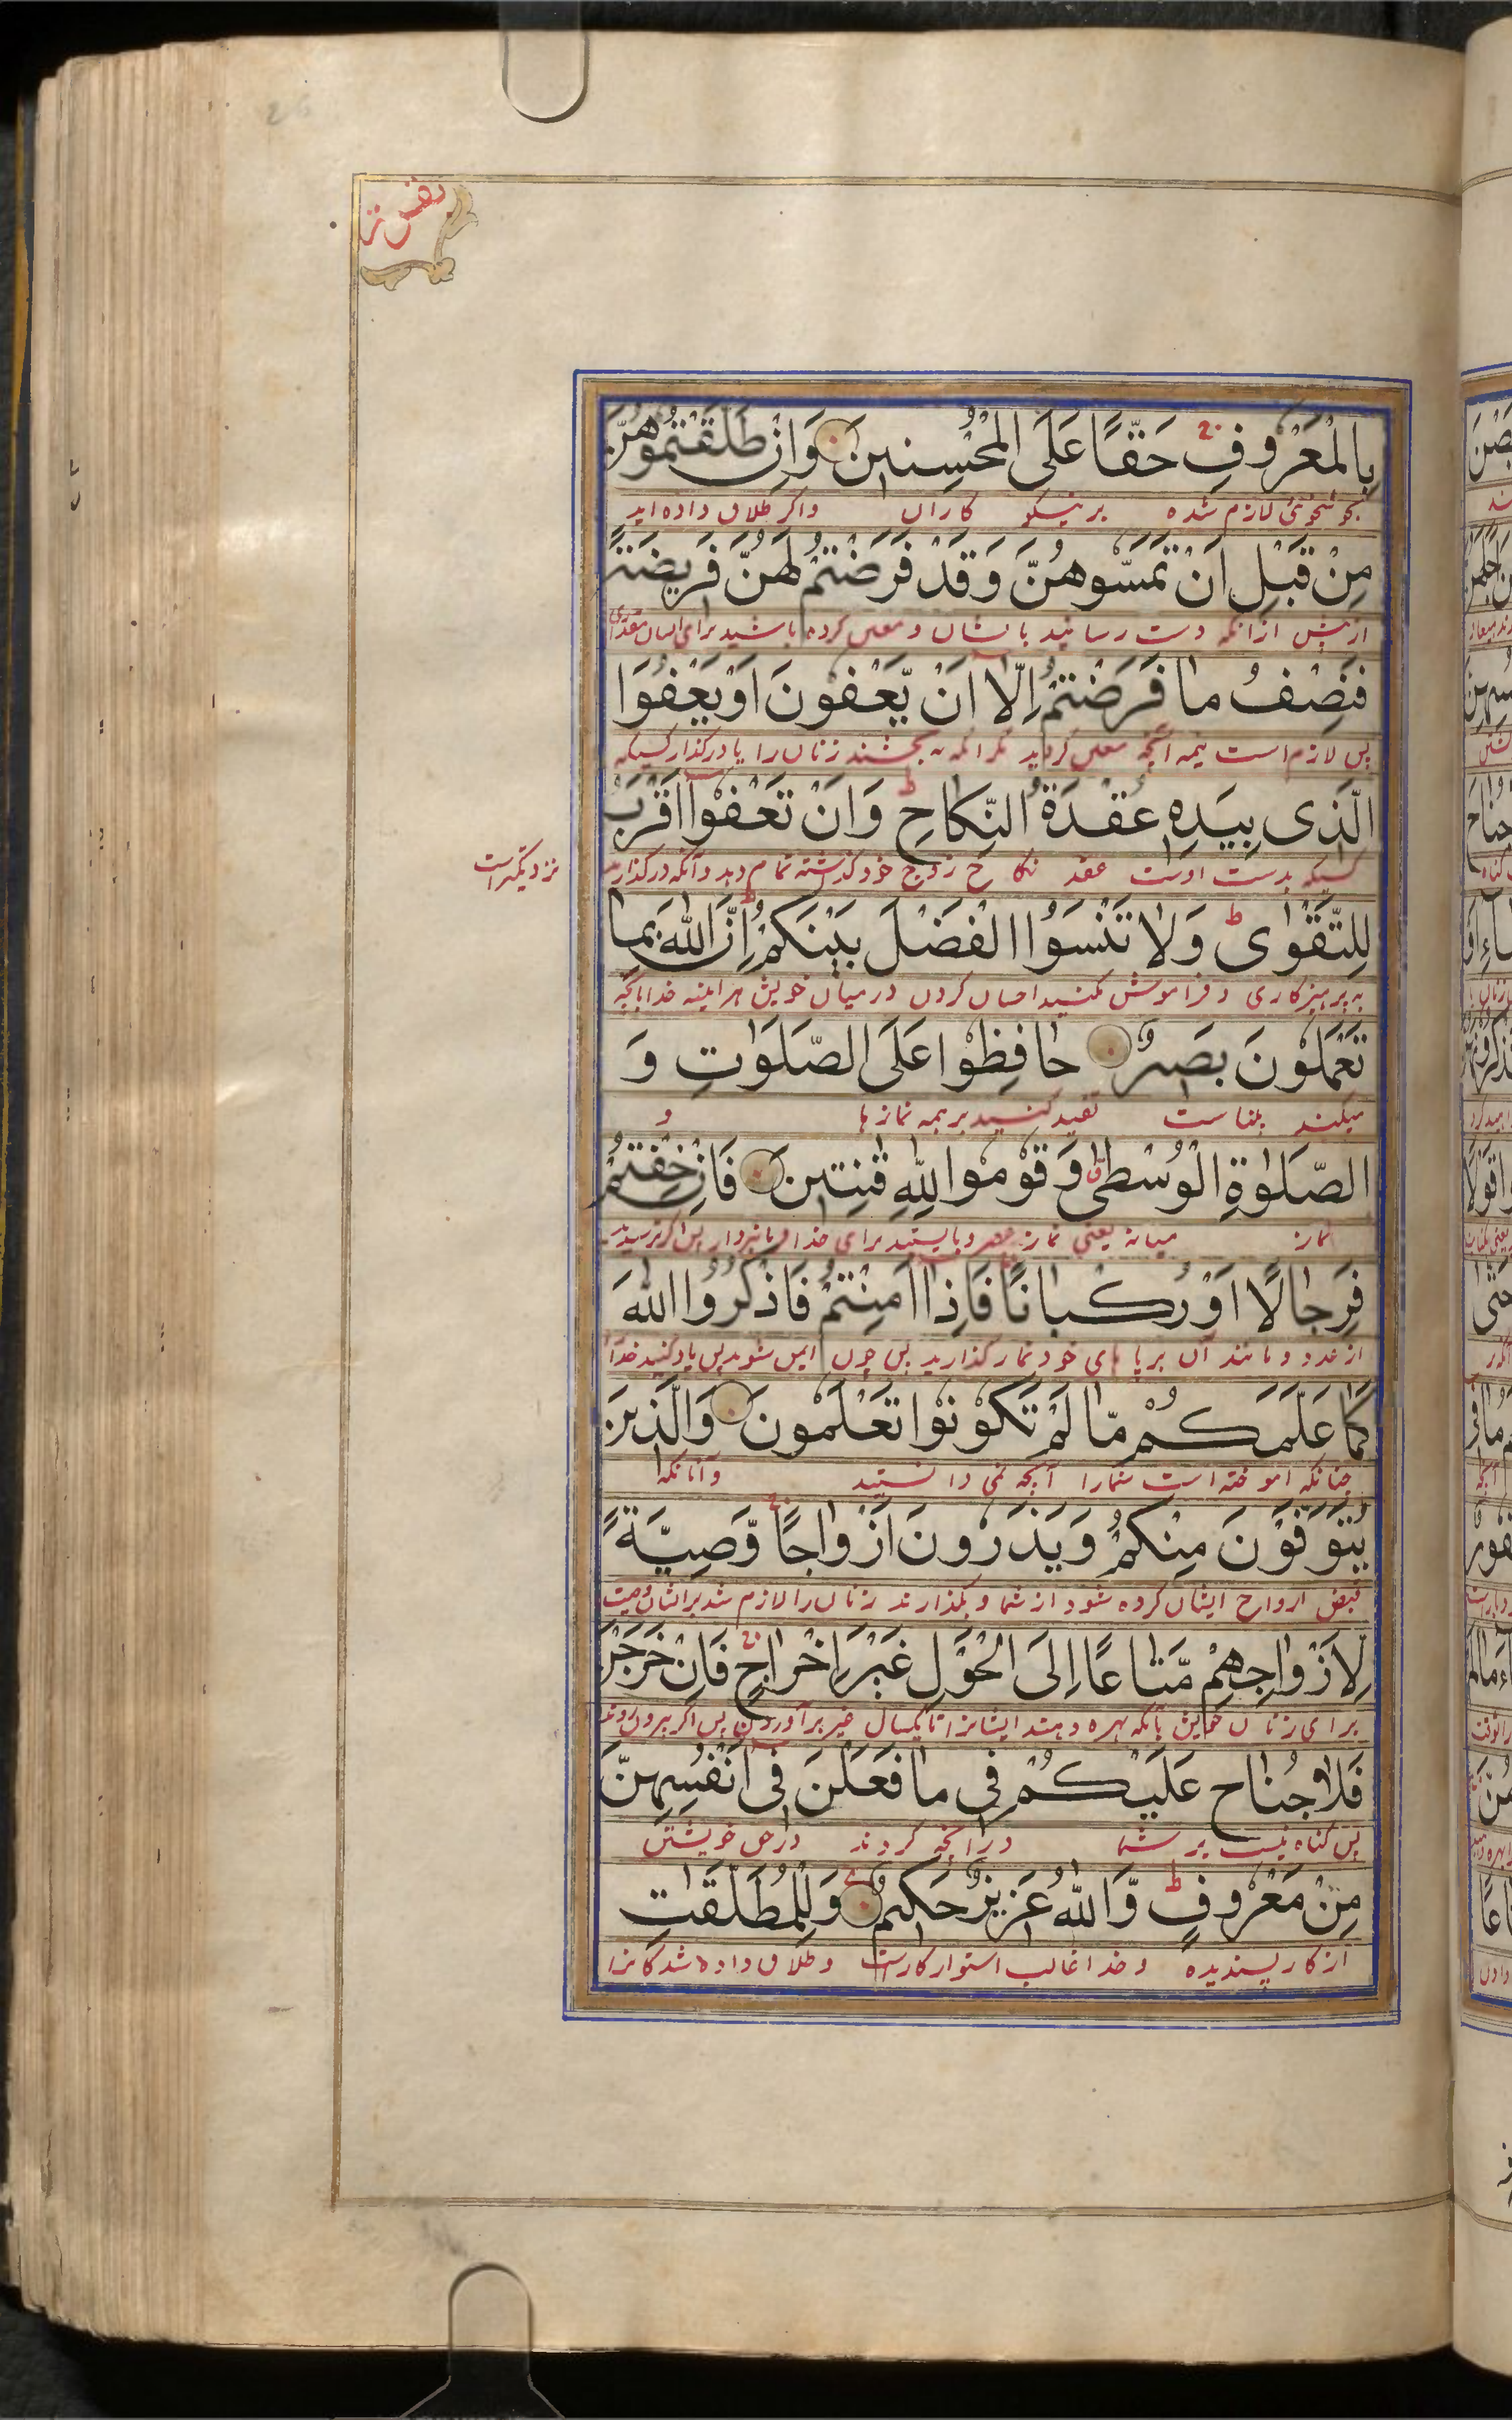 بِالْمَعْرُوفِ حَقًّا عَلَى الْمُحْسِنِينَ وَاِنْ طَلَّقْتُمُوهُنَّ
لازم شده بر نیکو کاران واکر طلاق داده اید
مِنْ قَبْلِ اَنْ تَمَسُّوهُنَّ وَقَدْ فَرَضْتُمْ لَهُنَّ فَرِيضَةً
از پیش ازانکه دست رسانید بایشان و معین کرده باشید برای ایشان مقداری
فَنِصْفُ مَا فَرَضْتُمْ اِلَّا اَنْ يَّعْفُونَ اَوْ يَعْفُوَا
پس لازم است نیمه آنچه معین کردید مکر انکه به بخشند زنان را یا درکذار کسیکه
الَّذِى بِيَدِهٖ عُقْدَةُ النِّكَاحِ ط وَاَنْ تَعْفُوْآ اَقْرَبُ
کسیکه بدست اوست عقد نکاح زوج خود کذشته تمام دهد وآنکه درکذارید
نزدیکتراست
لِلتَّقْوٰى ط وَلَا تَنْسَوُا الْفَضْلَ بَيْنَكُمْ ط اِنَّ اللّٰهَ بِمَا
به پرهیزکاری و فراموش مکنید احسان کردن درمیان خویش هرآینه خدا بانچه
تَعْمَلُونَ بَصِيرٌ حَافِظُوا عَلَى الصَّلَوٰتِ وَ
میکنید بیناست تقید کنید بر همه نمازها و
الصَّلٰوةِ الْوُسْطٰى وَقُوْمُوا لِلّٰهِ قٰنِتِينَ فَاِنْ خِفْتُمْ
نماز میانه یعنی نماز عصر و بایستید برای خدا فرمانبردار پس اکر ترسیدید
فَرِجَالًا اَوْ رُكْبَانًا فَاِذَا اَمِنْتُمْ فَاذْكُرُوا اللّٰهَ
از عدو و مانند آن بر پا های خود نماز کذارید پس چون ایمن شوید پس یاد کنید خدا را
كَمَا عَلَّمَكُمْ مَّا لَمْ تَكُوْنُوْا تَعْلَمُونَ وَالَّذِينَ
چنانکه اموخته است شمارا آنچه نمی دانستید وآنانکه
يُتَوَفَّوْنَ مِنْكُمْ وَيَذَرُونَ اَزْوَاجًا وَّصِيَّةً
قبض ارواح ایشان کرده شود از شما و بکذارند زنان را لازم شد برایشان وصیت
لِّاَزْوَاجِهِمْ مَّتَاعًا اِلَى الْحَوْلِ غَيْرَ اِخْرَاجٍ فَاِنْ خَرَجْنَ
برای زنان خویش بآنکه بهره دهند ایشانرا تا یکسال غیر برآوردن پس اکر بیرون روند
فَلَا جُنَاحَ عَلَيْكُمْ فِى مَا فَعَلْنَ فِى اَنْفُسِهِنَّ
پس کناه نیست بر شما درانچه کردند درحق خویشتن
مِنْ مَعْرُوفٍ ط وَّاللّٰهُ عَزِيزٌ حَكِيمٌ وَلِلْمُطَلَّقٰتِ
از کار پسندیده و خدا غالب استوار کارست و طلاق داده شدکانرا